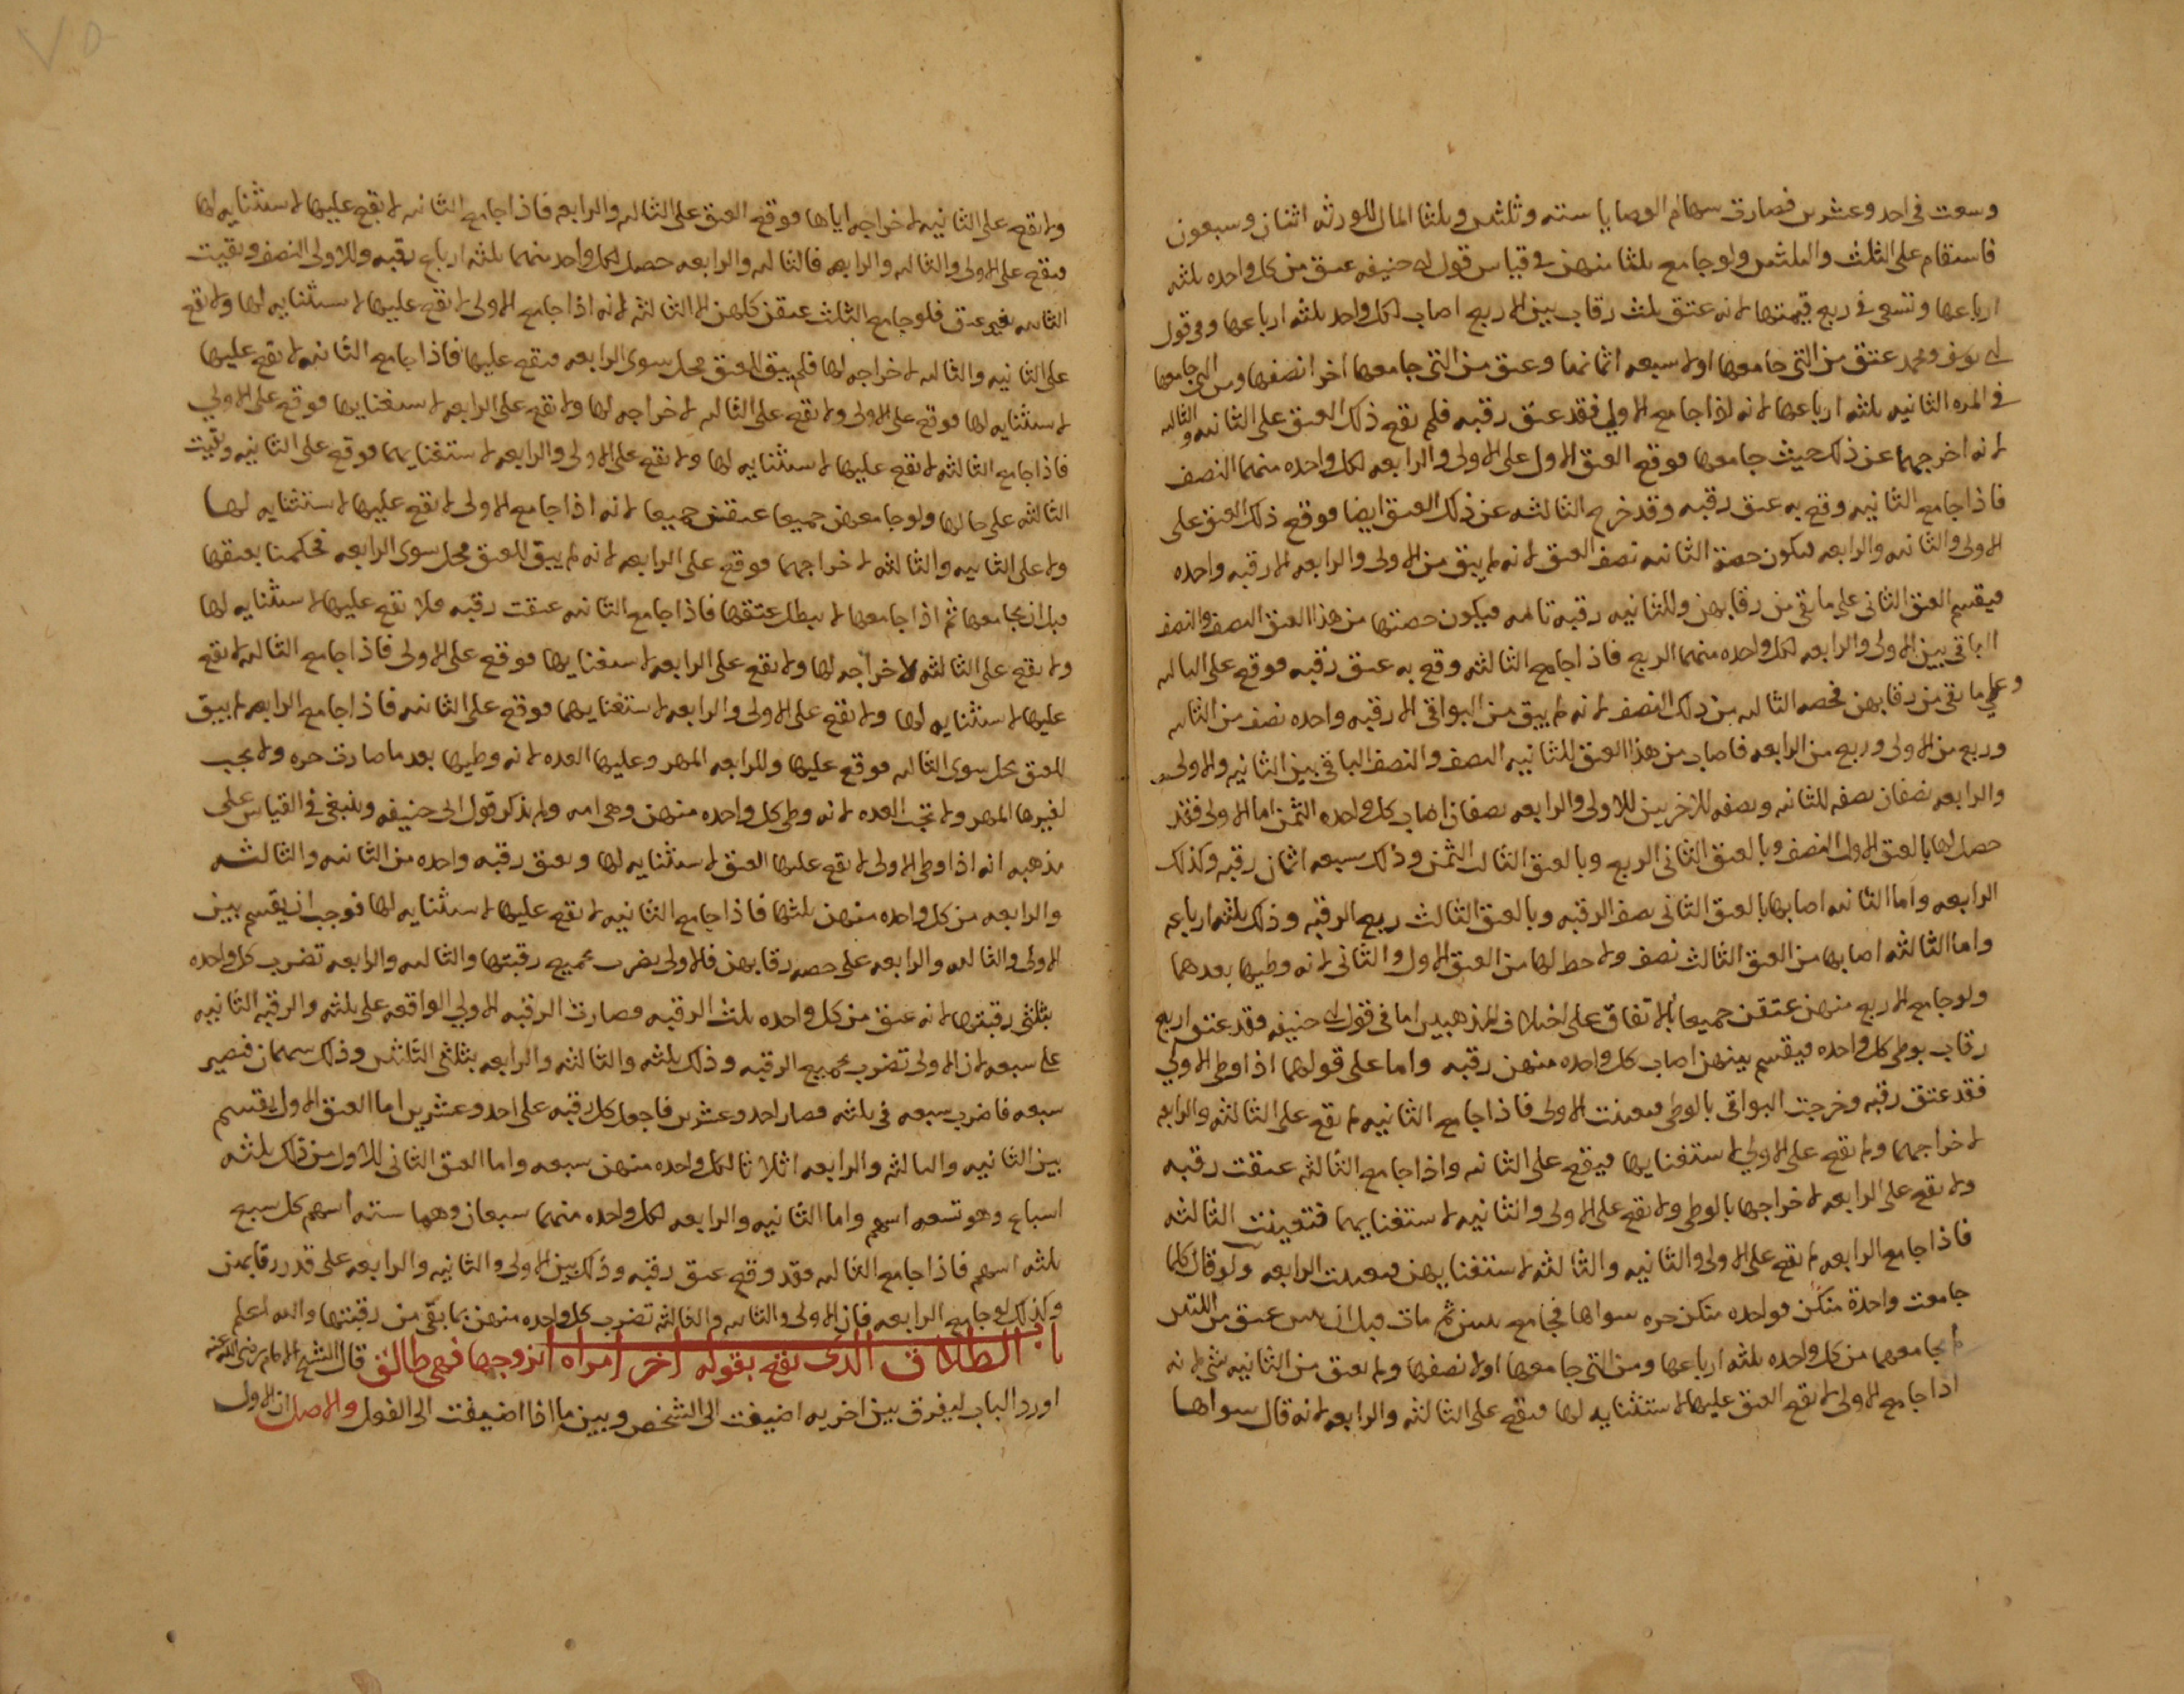 وسعت في احد وعشرين فصارت سهام الوصايا ستة وثلثين وثلثا المال للورثة اثنان وسبعون
فاستقام على الثلث والثلثين ولو جامع ثلثا منهن في قياس قول ابي حنيفه عتق من كل واحده ثلثه
ارباعها وتسعى في ربع قيمتها لانه عتق ثلث رقاب بين الاربع اصاب لكل واحد ثلثه ارباعها وفي قول
ابي يوسف ومحمد عتق من التي جامعها اولا سبعه اثمانها وعتق من التي جامعها اخرا نصفها ومن التي جامعها
في المره الثانيه ثلثه ارباعها لانه اذا جامع الاولي فقد عتق رقبه فلم يقع ذلك العتق على الثانيه والثالثه
لانه اخرجهما عن ذلك حيث جامعها فوقع العتق الاول على الاولى والرابعه لكل واحده منهما النصف
فاذا جامع الثانيه وقع به عتق رقبه وقد خرج الثالثه عن ذلك العتق ايضا فوقع ذلك العتق على
الاولى والثانيه والرابعه فيكون حصة الثانيه نصف العتق لانه لم يبق من الاولى والرابعه الا رقبه واحده
فيقسم العتق الثاني على ما بقي من رقابهن وللثانيه رقبه تامه فيكون حصتها من هذا العتق النصف والنصف
الباقي بين الاولى والرابعه لكل واحده منهما الربع فاذا جامع الثالثه وقع به عتق رقبه فوقع على الثالثه
وعلي ما بقي من رقابهن فحصه الثالثه من ذلك النصف لانه لم يبق من البواقي الا رقبه واحده نصف من الثانيه
وربع من الاولى وربع من الرابعه فاصاب من هذا العتق للثانيه النصف والنصف الباقي بين الثانيه والاولى
والرابعه نصفان نصفه للثانيه ونصفه للاخريين للاولى والرابعه نصفان اصاب كل واحده الثمن اما الاولى فقد
حصل لها بالعتق الاول النصف وبالعتق الثاني الربع وبالعتق الثالث الثمن وذلك سبعه اثمان رقبه وكذلك
الرابعه واما الثانيه اصابها بالعتق الثاني نصف الرقبه وبالعتق الثالث ربع الرقبه وذلك ثلثه ارباعه
واما الثالثه اصابها من العتق الثالث نصف ولا حط لها من العتق الاول والثاني لانه وطيها بعدهما
ولو جامع الاربع منهن عتقن جميعا بالاتفاق على اختلاف المذهبين اما في قول ابي حنيفه فقد عتق اربع
رقاب بوطي كل واحده فيقسم بينهن اصاب كل واحده منهن رقبه واما على قولهما اذا وطي الاولي
فقد عتق رقبه وخرجت البواقي بالوطي فتعينت الاولى فاذا جامع الثانيه لم يقع على الثالثه والرابعه
لاخراجهما ولم يقع على الاولي لاستغنايها فيقع على الثانيه واذا جامع الثالثه عتقت رقبه
ولا يقع على الرابعه لاخراجها بالوطي ولا يقع على الاولى والثانيه لاستغنايهما فتعينت الثالثه
فاذا جامع الرابعه لم يقع على الاولى والثانيه والثالثه لاستغنايهن فتعينت الرابعه ولو قال كلما
جامعت واحدة منكن فواحده منكن حره سواها فجامع ثنتين ثم مات قبل ان يبين عتق من اللتين
لم يجامعهما من كل واحده ثلثه ارباعها ومن التي جامعها اولا نصفها ولم يعتق من الثانيه شي لانه
اذا جامع الاولى لا يقع العتق عليها لاستثنايه لها فيقع على الثالثه والرابعه لانه قال سواها
ولا يقع على الثانيه لاخراجه اياها فوقع العتق على الثالثه والرابعه فاذا جامع الثانيه لا يقع عليها لاستثنايه لها
فيقع على الاولى والثالثه والرابعه فالثالثه والرابعه حصل لكل واحد منهما ثلثه ارباع رقبه وللاولى النصف وبقيت
الثانيه بغير عتق فلو جامع الثلث عتقن كلهن الا الثالثه لانه اذا جامع الاولى لا يقع عليها لاستثنايه لها ولا يقع
على الثانيه والثالثه لاخراجه لها فلم يبق للعتق محل سوى الرابعه فيقع عليها فاذا جامع الثانيه لا يقع عليها
لاستثنايه لها فوقع على الاولى ولا يقع على الثالثه لاخراجه لها ولا يقع على الرابعه لاستغنايها فوقع على الاولي
فاذا جامع الثالثه لا يقع عليها لاستثنايه لها ولا يقع على الاولى والرابعه لاستغنايهما فوقع على الثانيه وبقيت
الثالثه على حالها ولو جامعهن جميعا عتقن جميعا لانه اذا جامع الاولى لا يقع عليها لاستثنايه لها
ولا على الثانيه والثالثه لاخراجهما فوقع على الرابعه لانه لم يبق للعتق محل سوى الرابعه فحكمنا بعتقها
قبل ان يجامعها ثم اذا جامعها لا يبطل عتقها فاذا جامع الثانيه عتقت رقبه فلا يقع عليها لاستثنايه لها
ولا يقع على الثالثه لاخراجه لها ولا يقع على الرابعه لاستغنايها فوقع على الاولى فاذا جامع الثالثه لا يقع
عليها لاستثنايه لها ولا يقع على الاولى والرابعه لاستغنايهما فوقع على الثانيه فاذا جامع الرابعه لم يبق
للعتق محل سوى الثالثه فوقع عليها وللرابعه المهر وعليها العده لانه وطيها بعد ما صارت حره ولا يجب
لغيرها المهر ولا تجب العده لانه وطي كل واحده منهن وهي امه ولم يذكر قول ابي حنيفه وينبغي في القياس على
مذهبه انه اذا وطي الاولى لا يقع عليها العتق لاستثنايه لها ويعتق رقبه واحده من الثانيه والثالثه
والرابعه من كل واحده منهن ثلثها فاذا جامع الثانيه لا يقع عليها لاستثنايه لها فوجب ان يقسم بين
الاولى والثالثه والرابعه على حصه رقابهن فالاولى يضرب بجميع رقبتها والثالثه والرابعه تضرب كل واحده
بثلثي رقبتها لانه عتق من كل واحده ثلث الرقبه فصارت الرقبه الاولي الواقعه على ثلثه والرقبه الثانيه
على سبعه لان الاولى تضرب بجميع الرقبه وذلك ثلثه والثالثه والرابعه بثلثي الثلثين وذلك سهمان فتصير
سبعه فاضرب سبعه في ثلثه فصار احد وعشرين فاجعل كل رقبه على احد وعشرين اما العتق الاول يقسم
بين الثانيه والثالثه والرابعه اثلاثا لكل واحده منهن سبعه واما العتق الثاني للاولى من ذلك ثلثه
اسباع وهو تسعه اسهم واما الثانيه والرابعه لكل واحده منهما سبعان وهما سته اسهم كل سبع
ثلثه اسهم فاذا جامع الثالثه فقد وقع عتق رقبه وذلك بين الاولى والثانيه والرابعه على قدر رقابهن
وكذلك لو جامع الرابعه فان الاولى والثانيه والثالثه تضرب كل واحده منهن بما بقي من رقبتها والله اعلم
باب الطلاق الذي يقع بقوله اخر امراه اتزوجها فهي طالق قال الشيخ الامام رضي الله عنه
اورد الباب ليفرق بين اخريه اضيفت الى الشخص وبين ما اذا اضيفت الى الفعل والاصل ان الاول